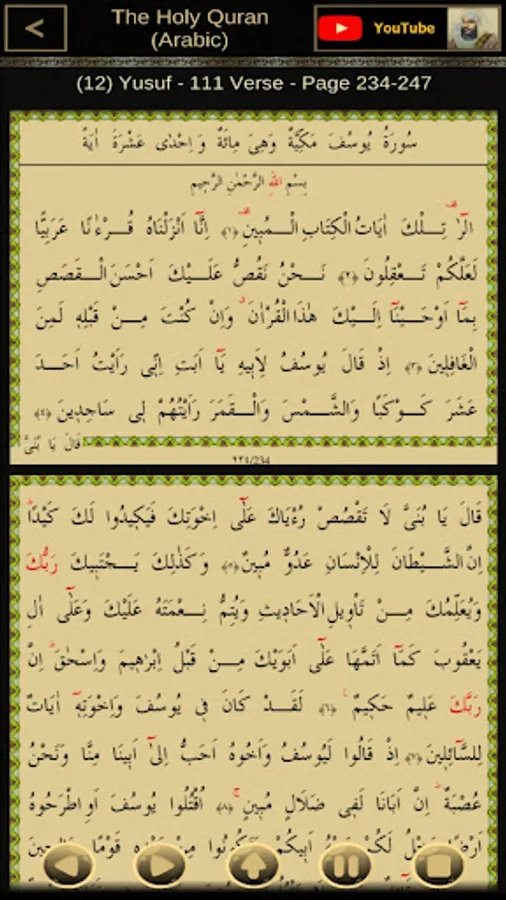 The Holy Quran
(Arabic)
YouTube
(12) Yusuf - 111 Verse - Page 234-247
سُورَةُ يُوسُفَ مَكِّيَّةٌ وَهِيَ مِائَةٌ وَاِحْدٰى عَشْرَةَ اٰيَةً
بِسْمِ اللهِ الرَّحْمٰنِ الرَّحِيمِ
الٓرٰ تِلْكَ اٰيَاتُ الْكِتَابِ الْمُبٖينِ ﴿١﴾ اِنَّٓا اَنْزَلْنَاهُ قُرْءٰنًا عَرَبِيًّا
لَعَلَّكُمْ تَعْقِلُونَ ﴿٢﴾ نَحْنُ نَقُصُّ عَلَيْكَ اَحْسَنَ الْقَصَصِ
بِمَٓا اَوْحَيْنَٓا اِلَيْكَ هٰذَا الْقُرْاٰنَ وَاِنْ كُنْتَ مِنْ قَبْلِهٖ لَمِنَ
الْغَافِلٖينَ ﴿٣﴾ اِذْ قَالَ يُوسُفُ لِاَبٖيهِ يَٓا اَبَتِ اِنّٖى رَاَيْتُ اَحَدَ
عَشَرَ كَوْكَبًا وَالشَّمْسَ وَالْقَمَرَ رَاَيْتُهُمْ لٖى سَاجِدٖينَ ﴿٤﴾
قَالَ يَا بُنَىَّ
٢٣٤/234
قَالَ يَا بُنَىَّ لَا تَقْصُصْ رُءْيَاكَ عَلٰٓى اِخْوَتِكَ فَيَكٖيدُوا لَكَ كَيْدًا
اِنَّ الشَّيْطَانَ لِلْاِنْسَانِ عَدُوٌّ مُبٖينٌ ﴿٥﴾ وَكَذٰلِكَ يَجْتَبٖيكَ رَبُّكَ
وَيُعَلِّمُكَ مِنْ تَاْوٖيلِ الْاَحَادٖيثِ وَيُتِمُّ نِعْمَتَهُ عَلَيْكَ وَعَلٰٓى اٰلِ
يَعْقُوبَ كَمَٓا اَتَمَّهَا عَلٰٓى اَبَوَيْكَ مِنْ قَبْلُ اِبْرٰهٖيمَ وَاِسْحٰقَ اِنَّ
رَبَّكَ عَلٖيمٌ حَكٖيمٌ ﴿٦﴾ لَقَدْ كَانَ فٖى يُوسُفَ وَاِخْوَتِهٖٓ اٰيَاتٌ
لِلسَّٓائِلٖينَ ﴿٧﴾ اِذْ قَالُوا لَيُوسُفُ وَاَخُوهُ اَحَبُّ اِلٰٓى اَبٖينَا مِنَّا وَنَحْنُ
عُصْبَةٌ اِنَّ اَبَانَا لَفٖى ضَلَالٍ مُبٖينٍ ﴿٨﴾ اُقْتُلُوا يُوسُفَ اَوِ اطْرَحُوهُ
اَرْضًا يَخْلُ لَكُمْ وَجْهُ اَبٖيكُمْ وَتَكُونُوا مِنْ بَعْدِهٖ قَوْمًا صَالِحٖينَ